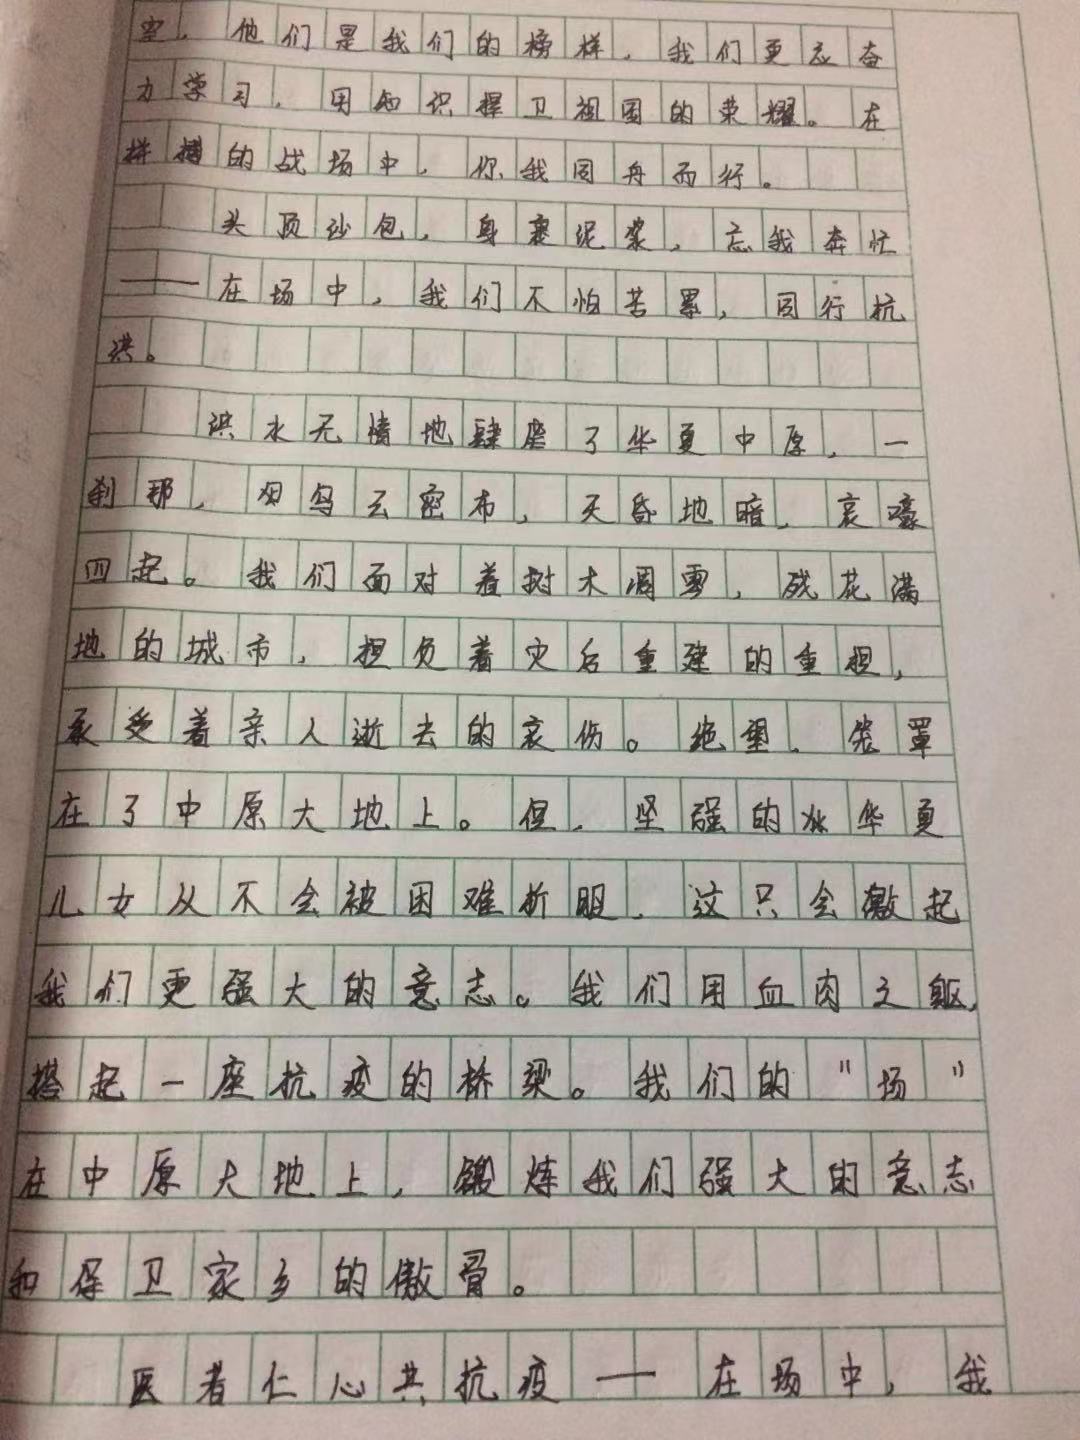 空，他们是我们的榜样，我们更应奋
力学习，用知识捍卫祖国的荣耀。在
拼搏的战场中，你我同舟而行。
头顶沙包，身裹泥浆，忘我奔忙
——在场中，我们不怕苦累，同行抗
洪。
洪水无情地肆虐了华夏中原，一
刹那，乌云密布，天昏地暗，哀嚎
四起。我们面对着树木凋零，残花满
地的城市，担负着灾后重建的重担，
承受着亲人逝去的哀伤。绝望，笼罩
在了中原大地上。但，坚强的华夏
儿女从不会被困难折服，这只会激起
我们更强大的意志。我们用血肉之躯，
搭起一座抗疫的桥梁。我们的“场”
在中原大地上，锻炼我们强大的意志
和保卫家乡的傲骨。
医者仁心共抗疫——在场中，我